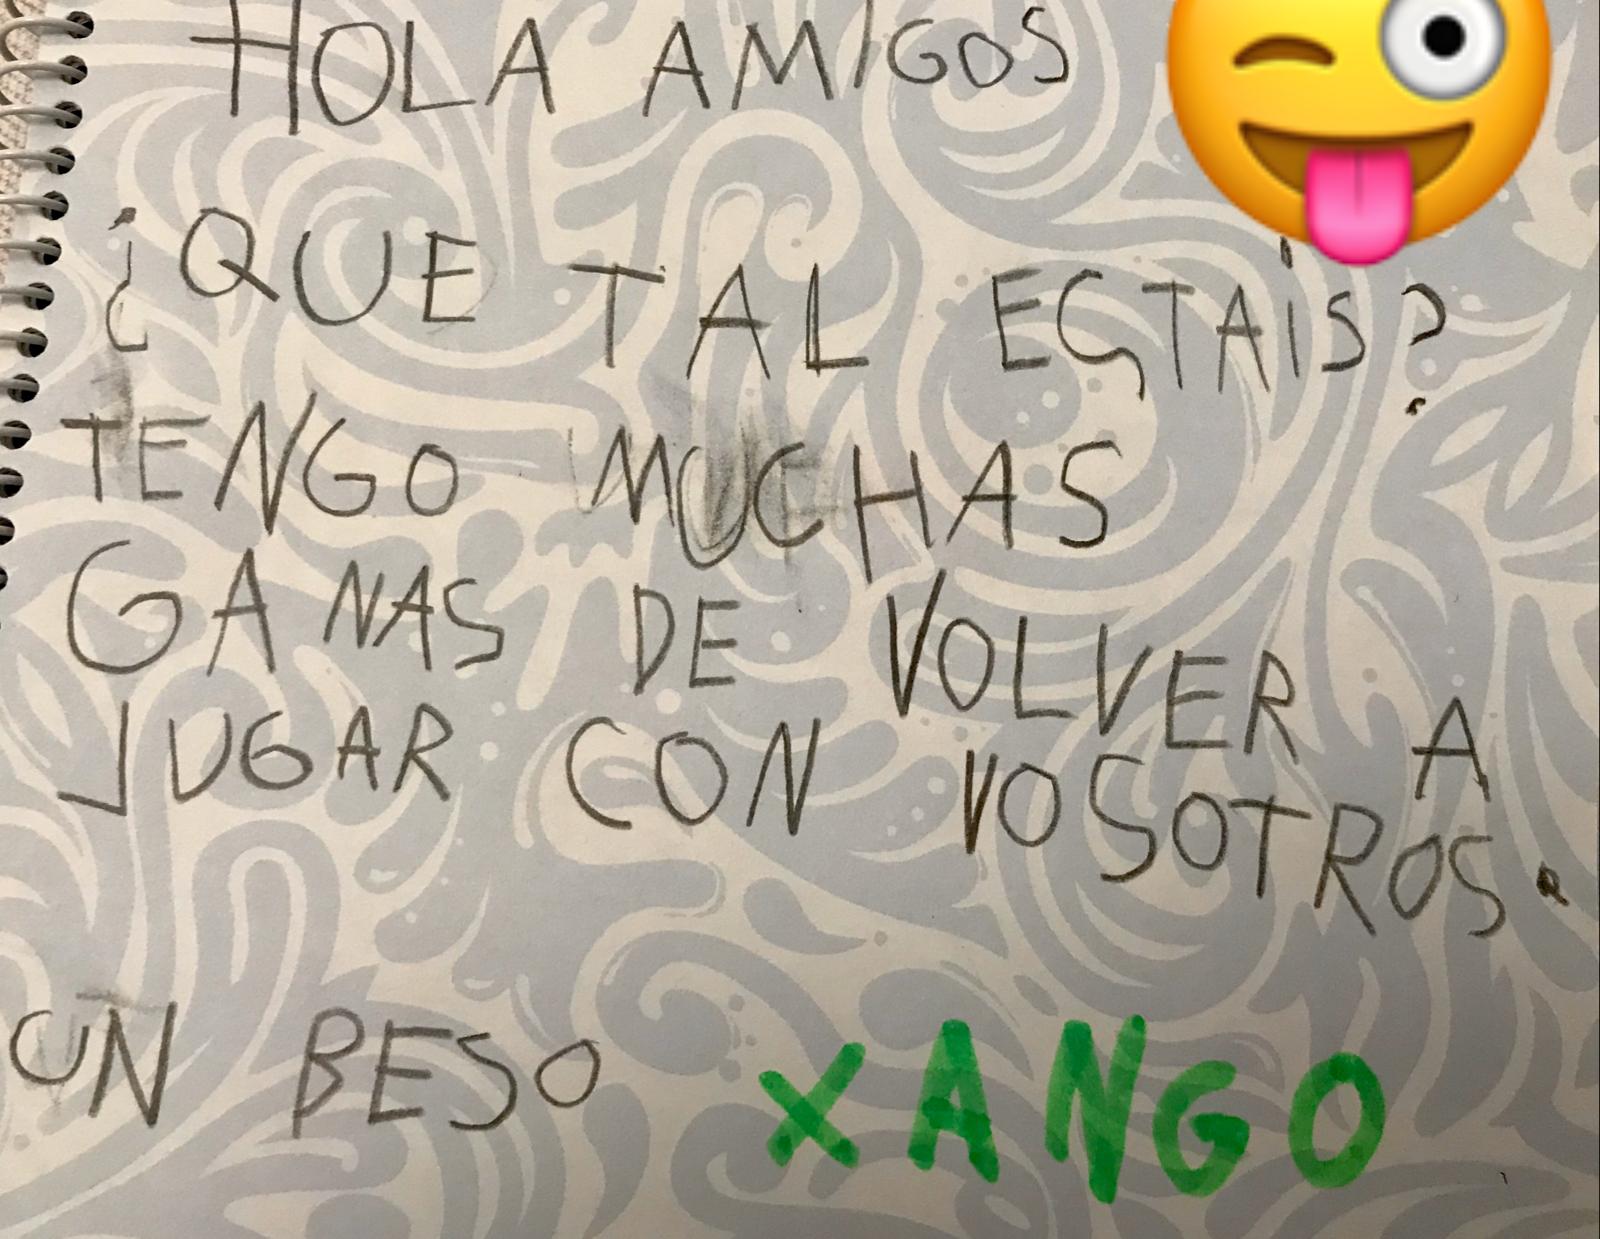 HOLA AMIGOS
¿QUE TAL ESTAIS?
TENGO MUCHAS
GANAS DE VOLVER A
JUGAR CON VOSOTROS.
UN BESO XANGO